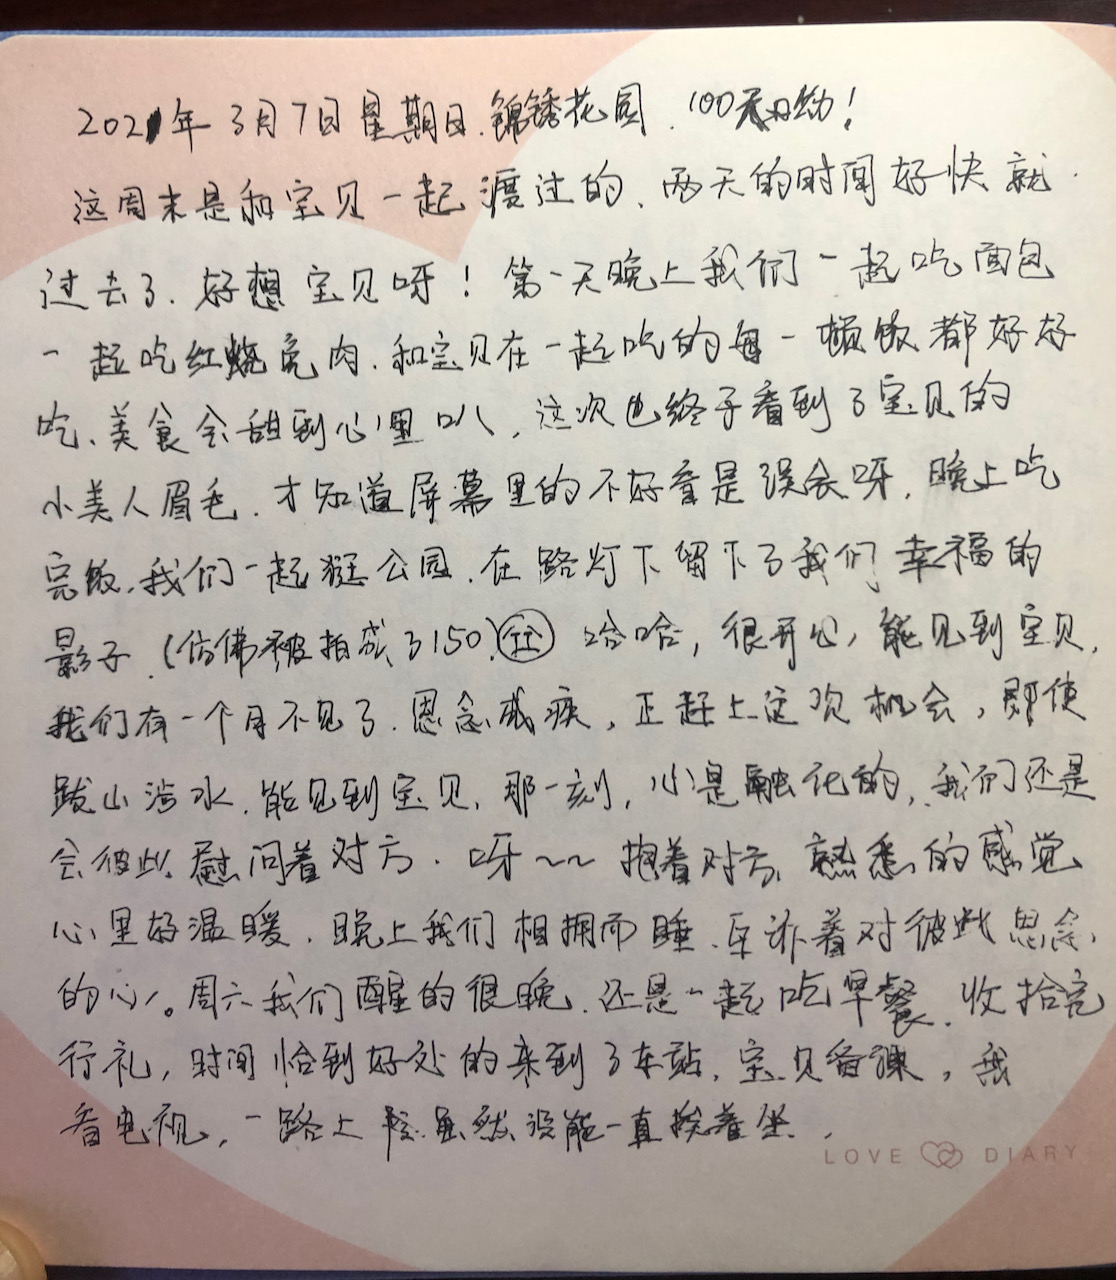 2021年3月7日星期日.锦绣花园.100天加油!
这周末是和宝贝一起渡过的、两天的时间好快就
过去了.好想宝贝呀!第一天晚上我们一起吃面包
一起吃红烧兔肉.和宝贝在一起吃的每一顿饭都好好
吃、美食会甜到心里叭,这次也终于看到了宝贝的
小美人眉毛.才知道屏幕里的不好看是误会呀.晚上吃
完饭.我们一起逛公园.在路灯下留下了我们幸福的
影子.(仿佛被拍成了150) 哈哈,很开心,能见到宝贝,
我们有一个月不见了.思念成疾,正赶上这次机会,即使
跋山涉水.能见到宝贝、那一刻,心是融化的,我们还是
会彼此慰问着对方.呀~~抱着对方、熟悉的感觉
心里好温暖.晚上我们相拥而睡.互诉着对彼此思念
的心。周六我们醒的很晚.还是一起吃早餐.收拾完
行礼,时间恰到好处的来到了车站.宝贝备课,我
看电视,一路上虽然没能一直挨着坐.
LOVE DIARY